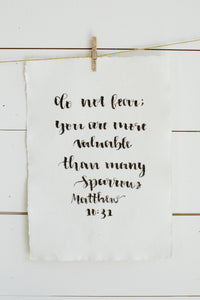 do not fear;
you are more
valuable
than many
sparrows
Matthew
10:31